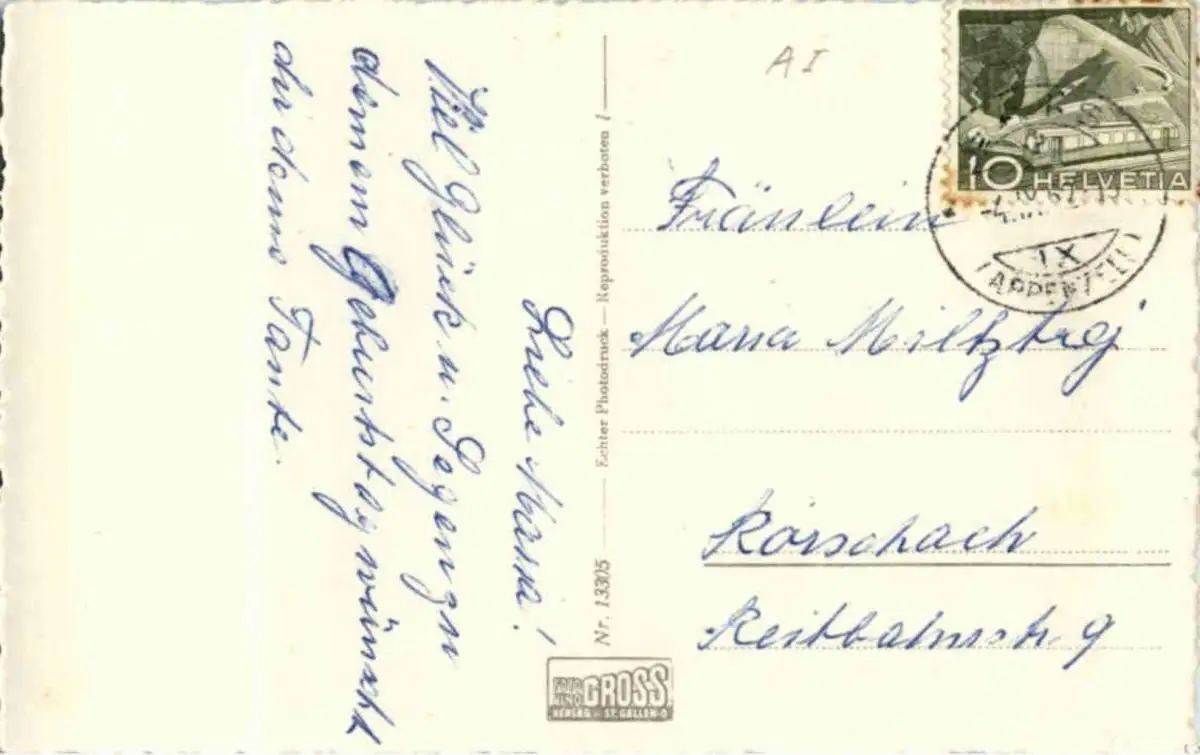 Liebe Maria!
Viel Glück u. Segen zu
deinem Geburtstag wünscht
dir deine Tante.
Nr. 13305 — Echter Photodruck — Reproduktion verboten !
FOTO GROSS
VERLAG - ST. GALLEN-O
A I
10 HELVETIA
IX
(APPENZELL)
Fräulein
Maria
Rorschach
Reitbahnstr. 9